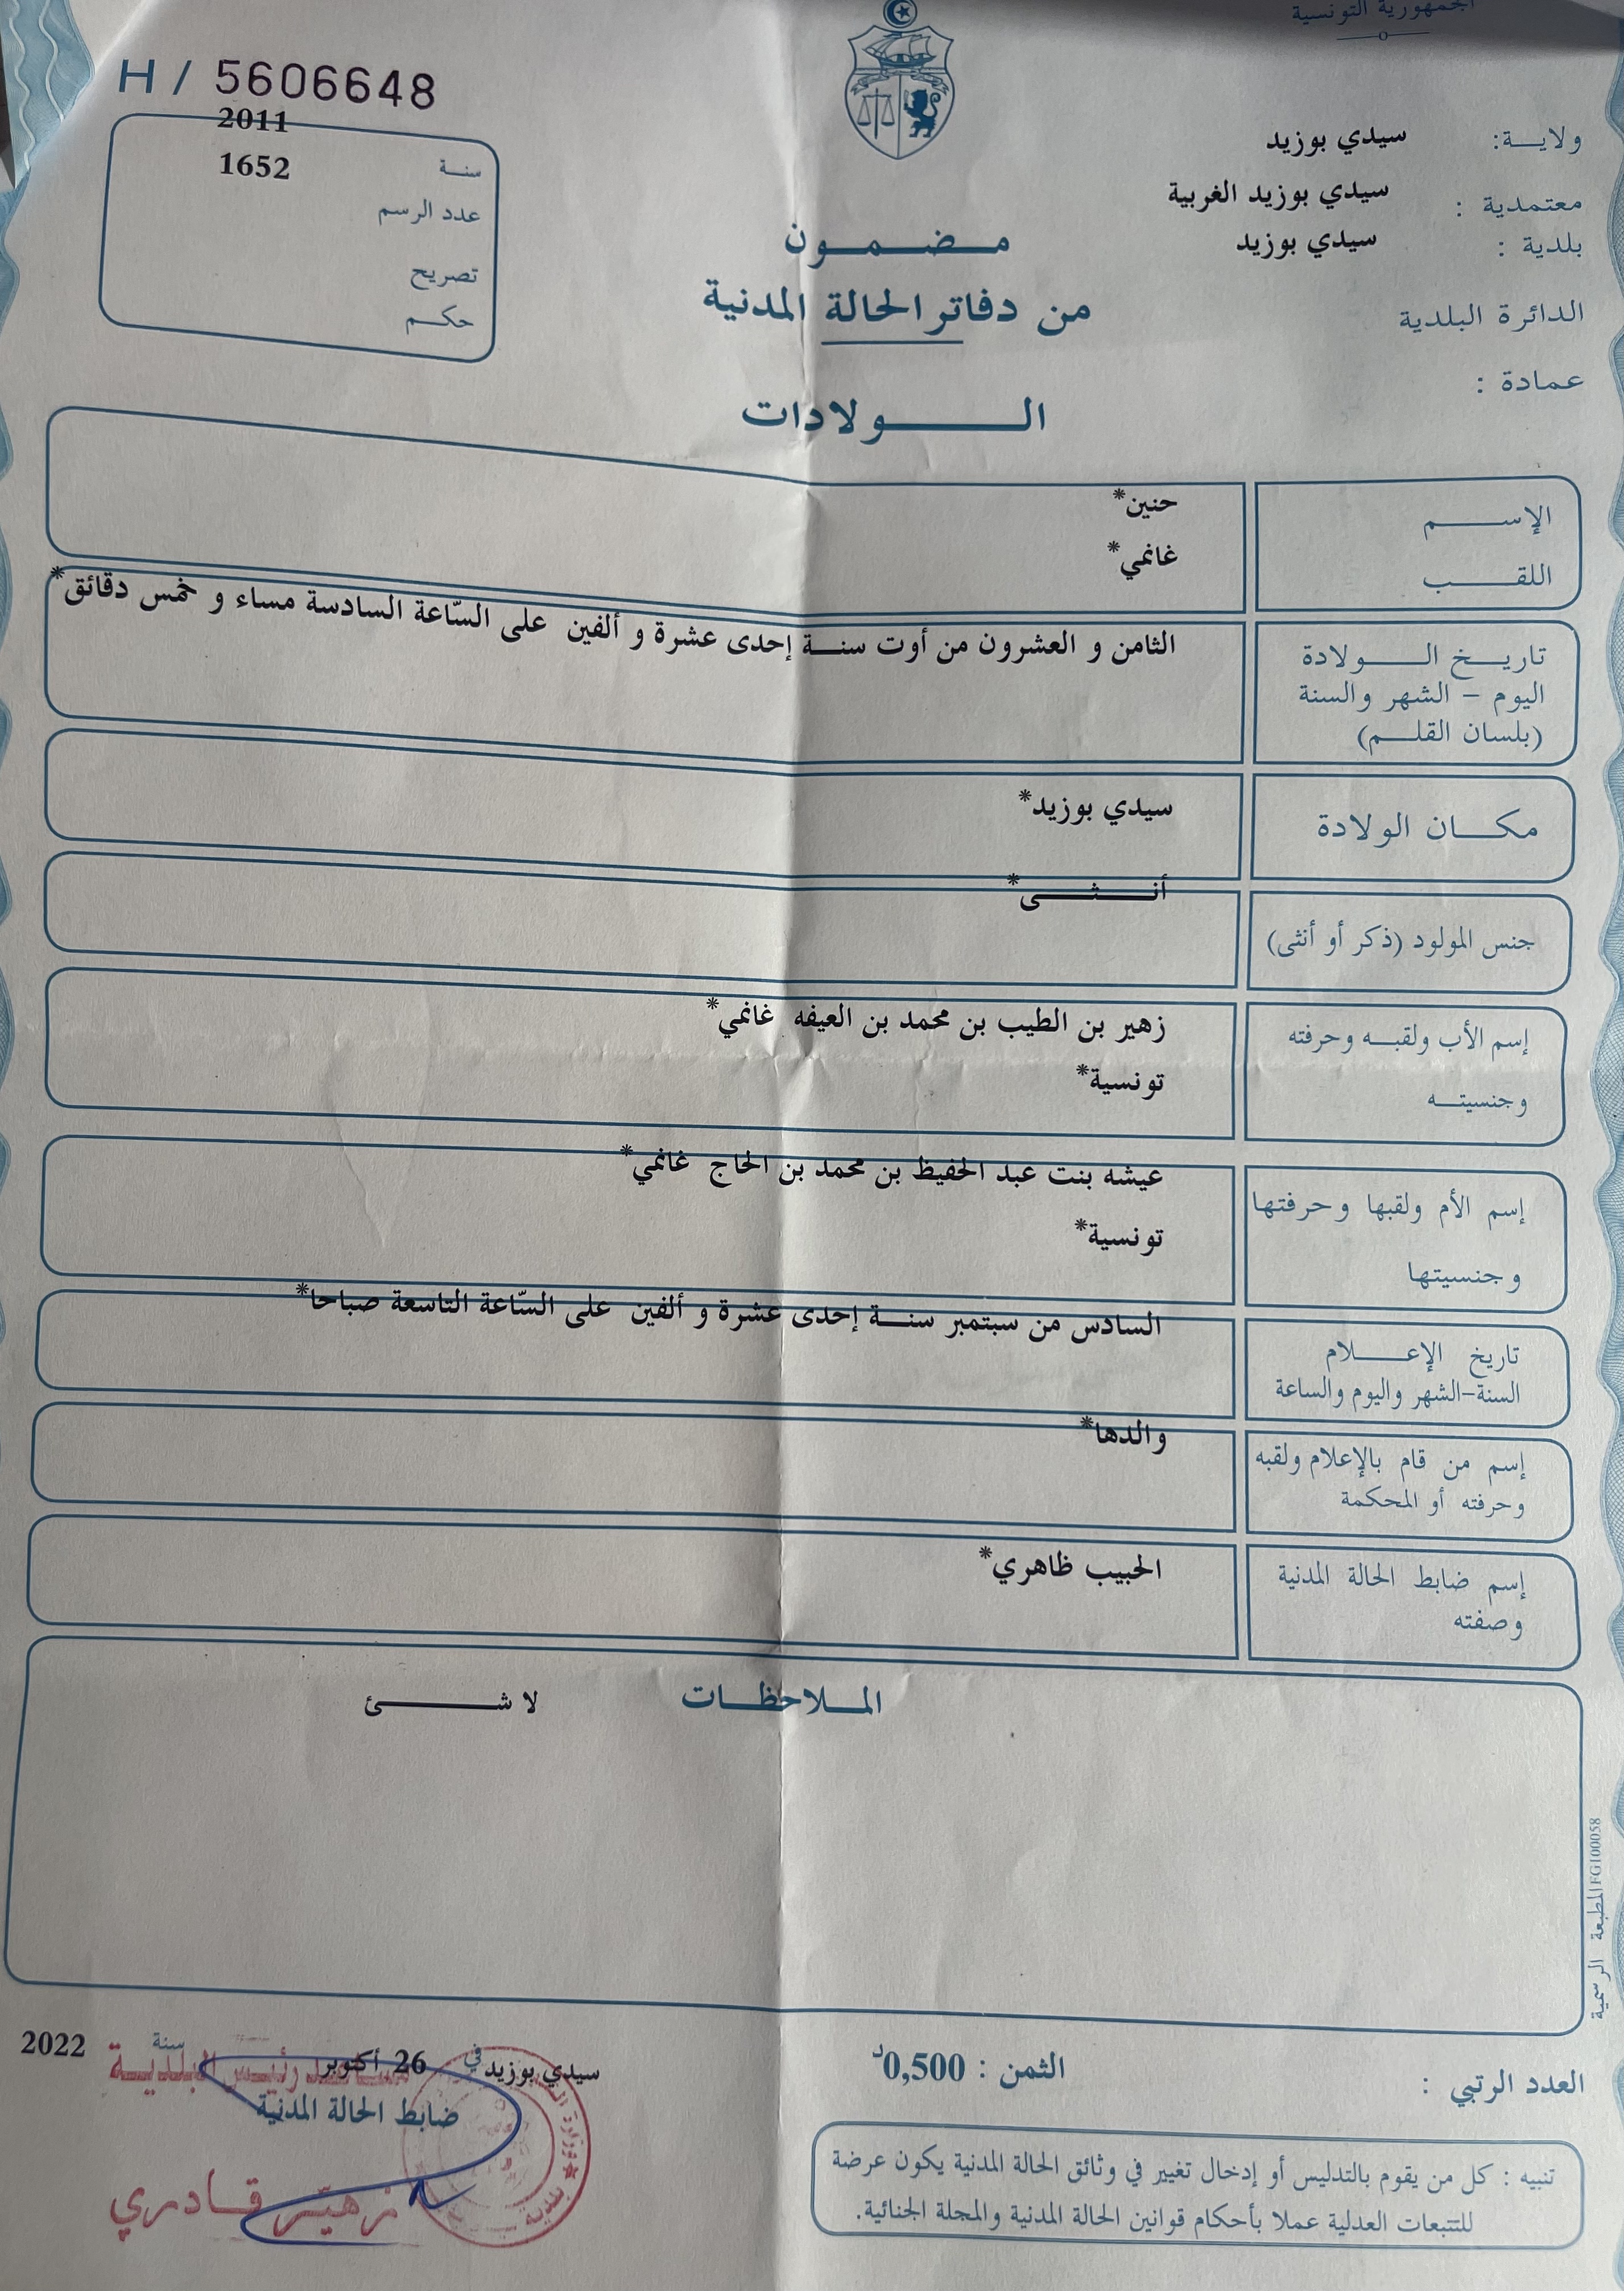 الجمهورية التونسية
H / 5606648
2011
سنة
1652
عدد الرسم
تصريح
حكم
ولاية: سيدي بوزيد
معتمدية : سيدي بوزيد الغربية
بلدية : سيدي بوزيد
الدائرة البلدية
عمادة :
مضمون
من دفاتر الحالة المدنية
الولادات
الإسم حنين*
اللقب غانمي*
تاريخ الولادة
اليوم - الشهر والسنة
(بلسان القلم)
الثامن و العشرون من أوت سنة إحدى عشرة و ألفين على السّاعة السادسة مساء و خمس دقائق*
مكان الولادة سيدي بوزيد*
جنس المولود (ذكر أو أنثى) أنثى*
إسم الأب ولقبه وحرفته زهير بن الطيب بن محمد بن العيفه غانمي*
وجنسيته تونسية*
إسم الأم ولقبها وحرفتها عيشه بنت عبد الحفيظ بن محمد بن الحاج غانمي*
وجنسيتها تونسية*
تاريخ الإعلام
السنة-الشهر واليوم والساعة
السادس من سبتمبر سنة إحدى عشرة و ألفين على السّاعة التاسعة صباحا*
إسم من قام بالإعلام ولقبه
وحرفته أو المحكمة
والدها*
إسم ضابط الحالة المدنية
وصفته
الحبيب ظاهري*
الملاحظات لا شئ
المطبعة الرسمية FG100058
العدد الرتبي :
الثمن : 0,500د
سيدي بوزيد في 26 أكتوبر سنة 2022
رئيس البلدية
ضابط الحالة المدنية
زهير قادري
تنبيه : كل من يقوم بالتدليس أو إدخال تغيير في وثائق الحالة المدنية يكون عرضة
للتتبعات العدلية عملا بأحكام قوانين الحالة المدنية والمجلة الجنائية.